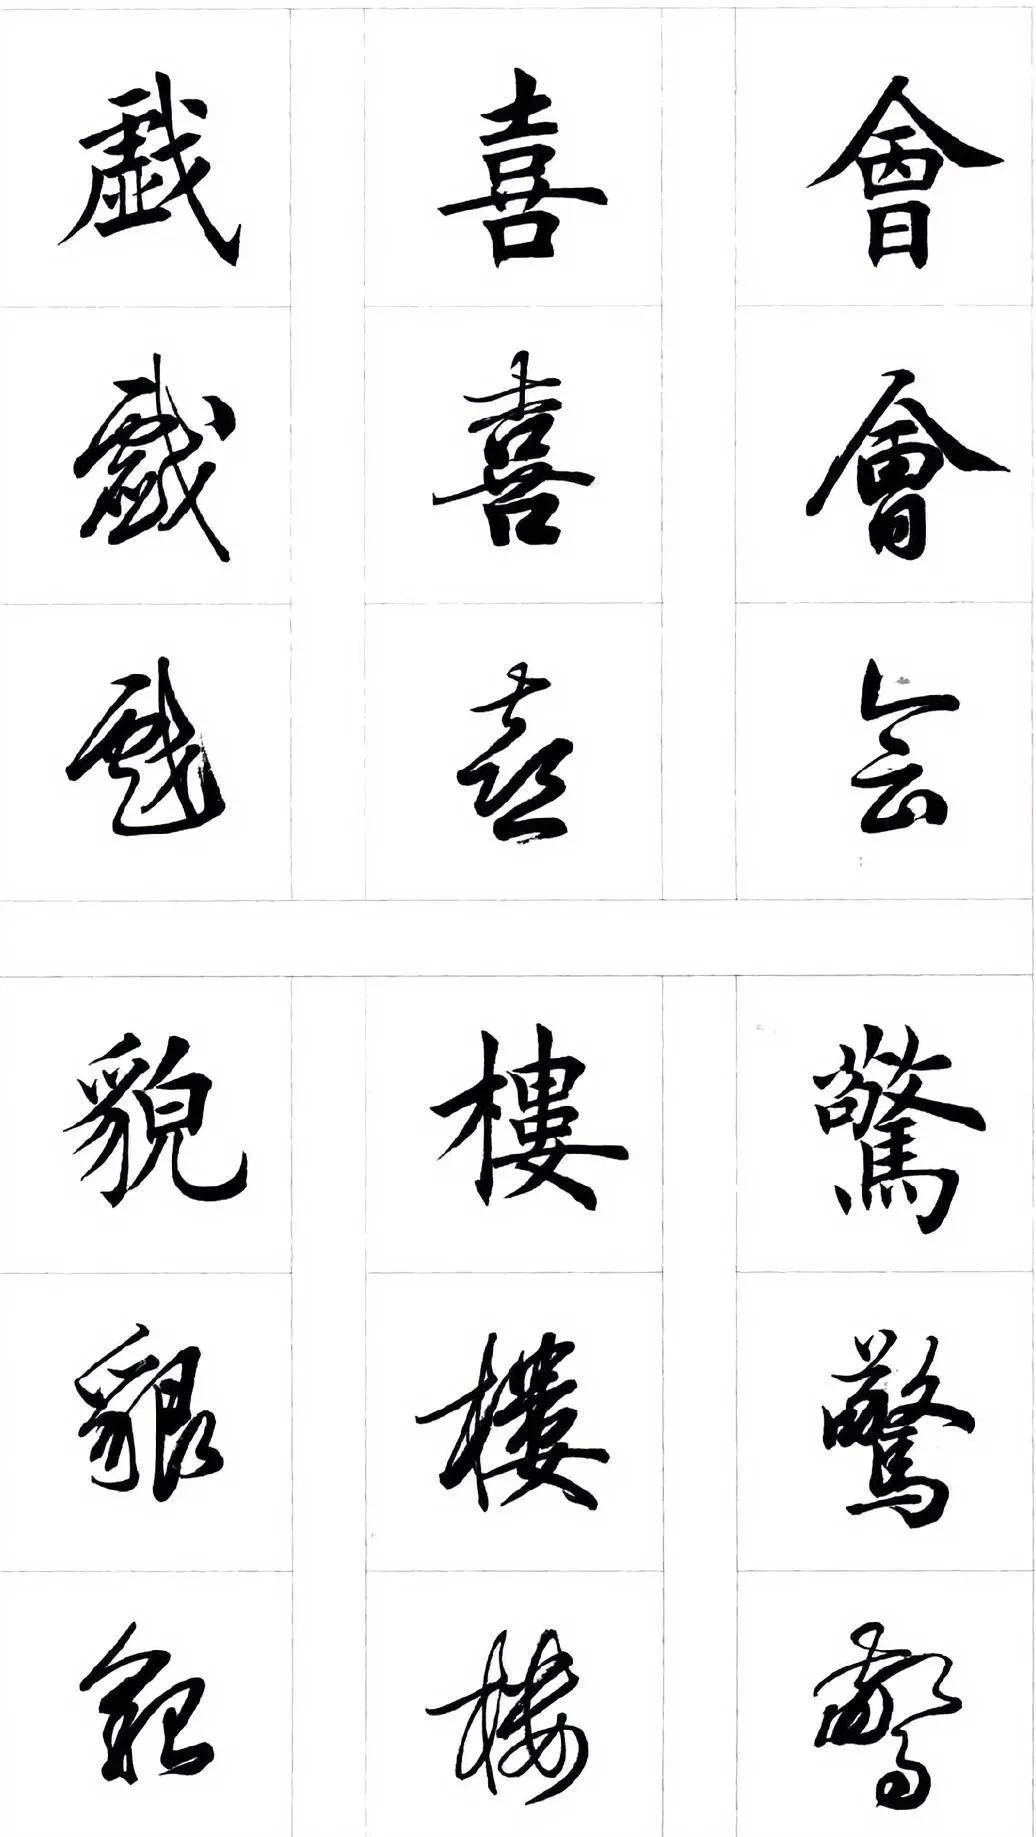 戲 喜 會
戲 喜 會
戲 喜 會
貌 樓 驚
貌 樓 驚
貌 樓 驚